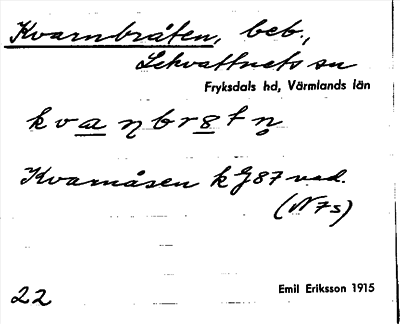 Kvarnbråten, beb.,
Lekvattnets sn
Fryksdals hd, Värmlands län
kvaηbr8tη
Kvarnåsen k G87 vad.
(N7s)
22
Emil Eriksson 1915